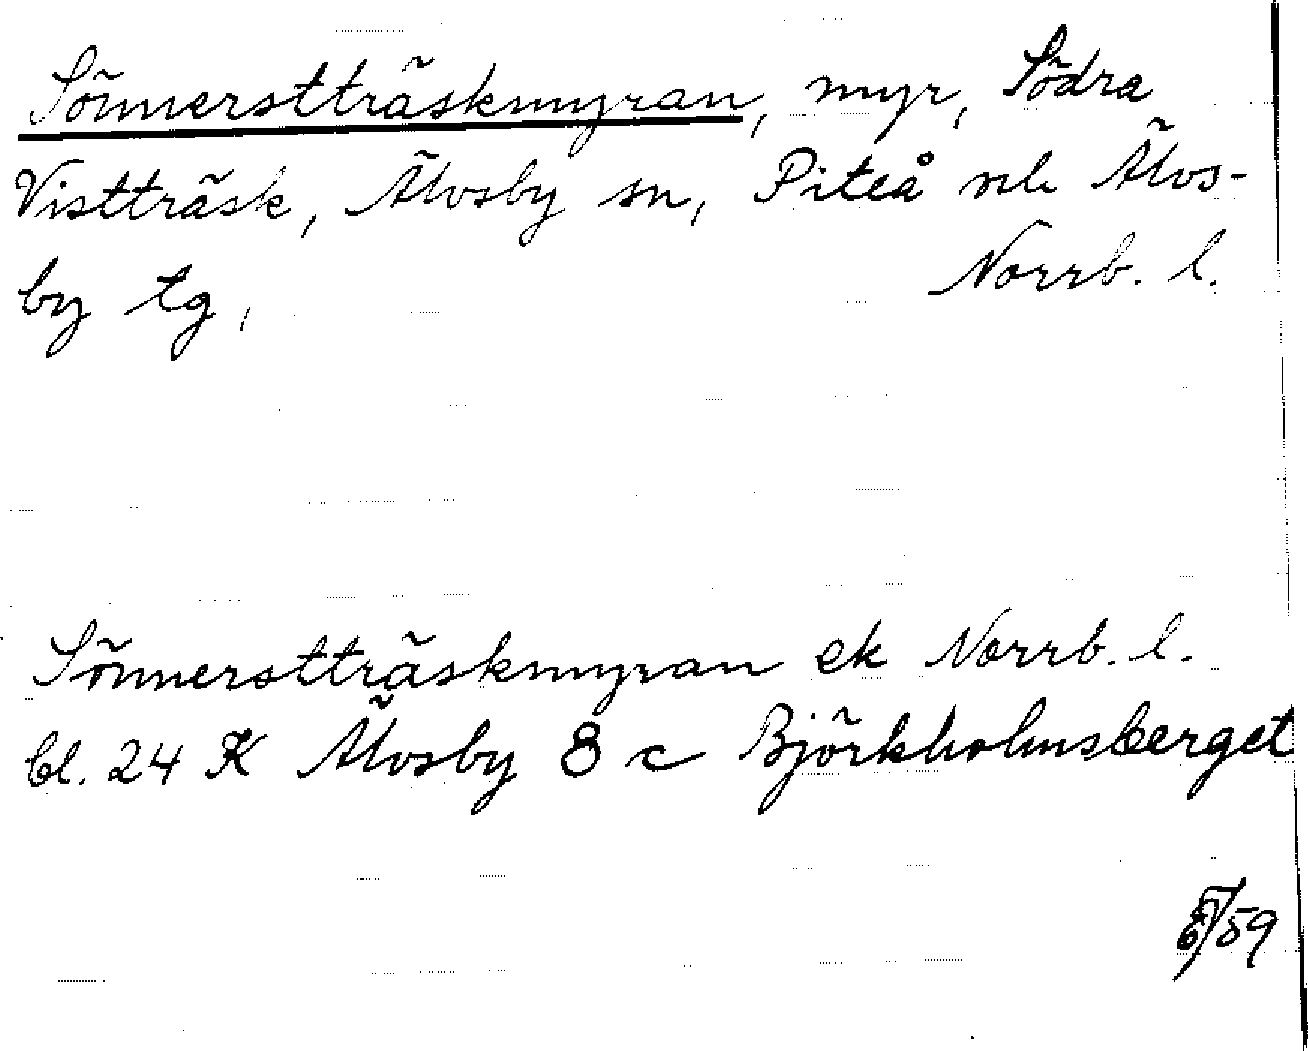 Sönnerstträskmyran, myr, Södra
Vistträsk, Älvsby sn, Piteå Älvs-
by tg, Norrb. l.
Sönnerstträskmyran ek Norrb. l.
bl. 24 K Älvsby 8 c Björkholmsberget
/59